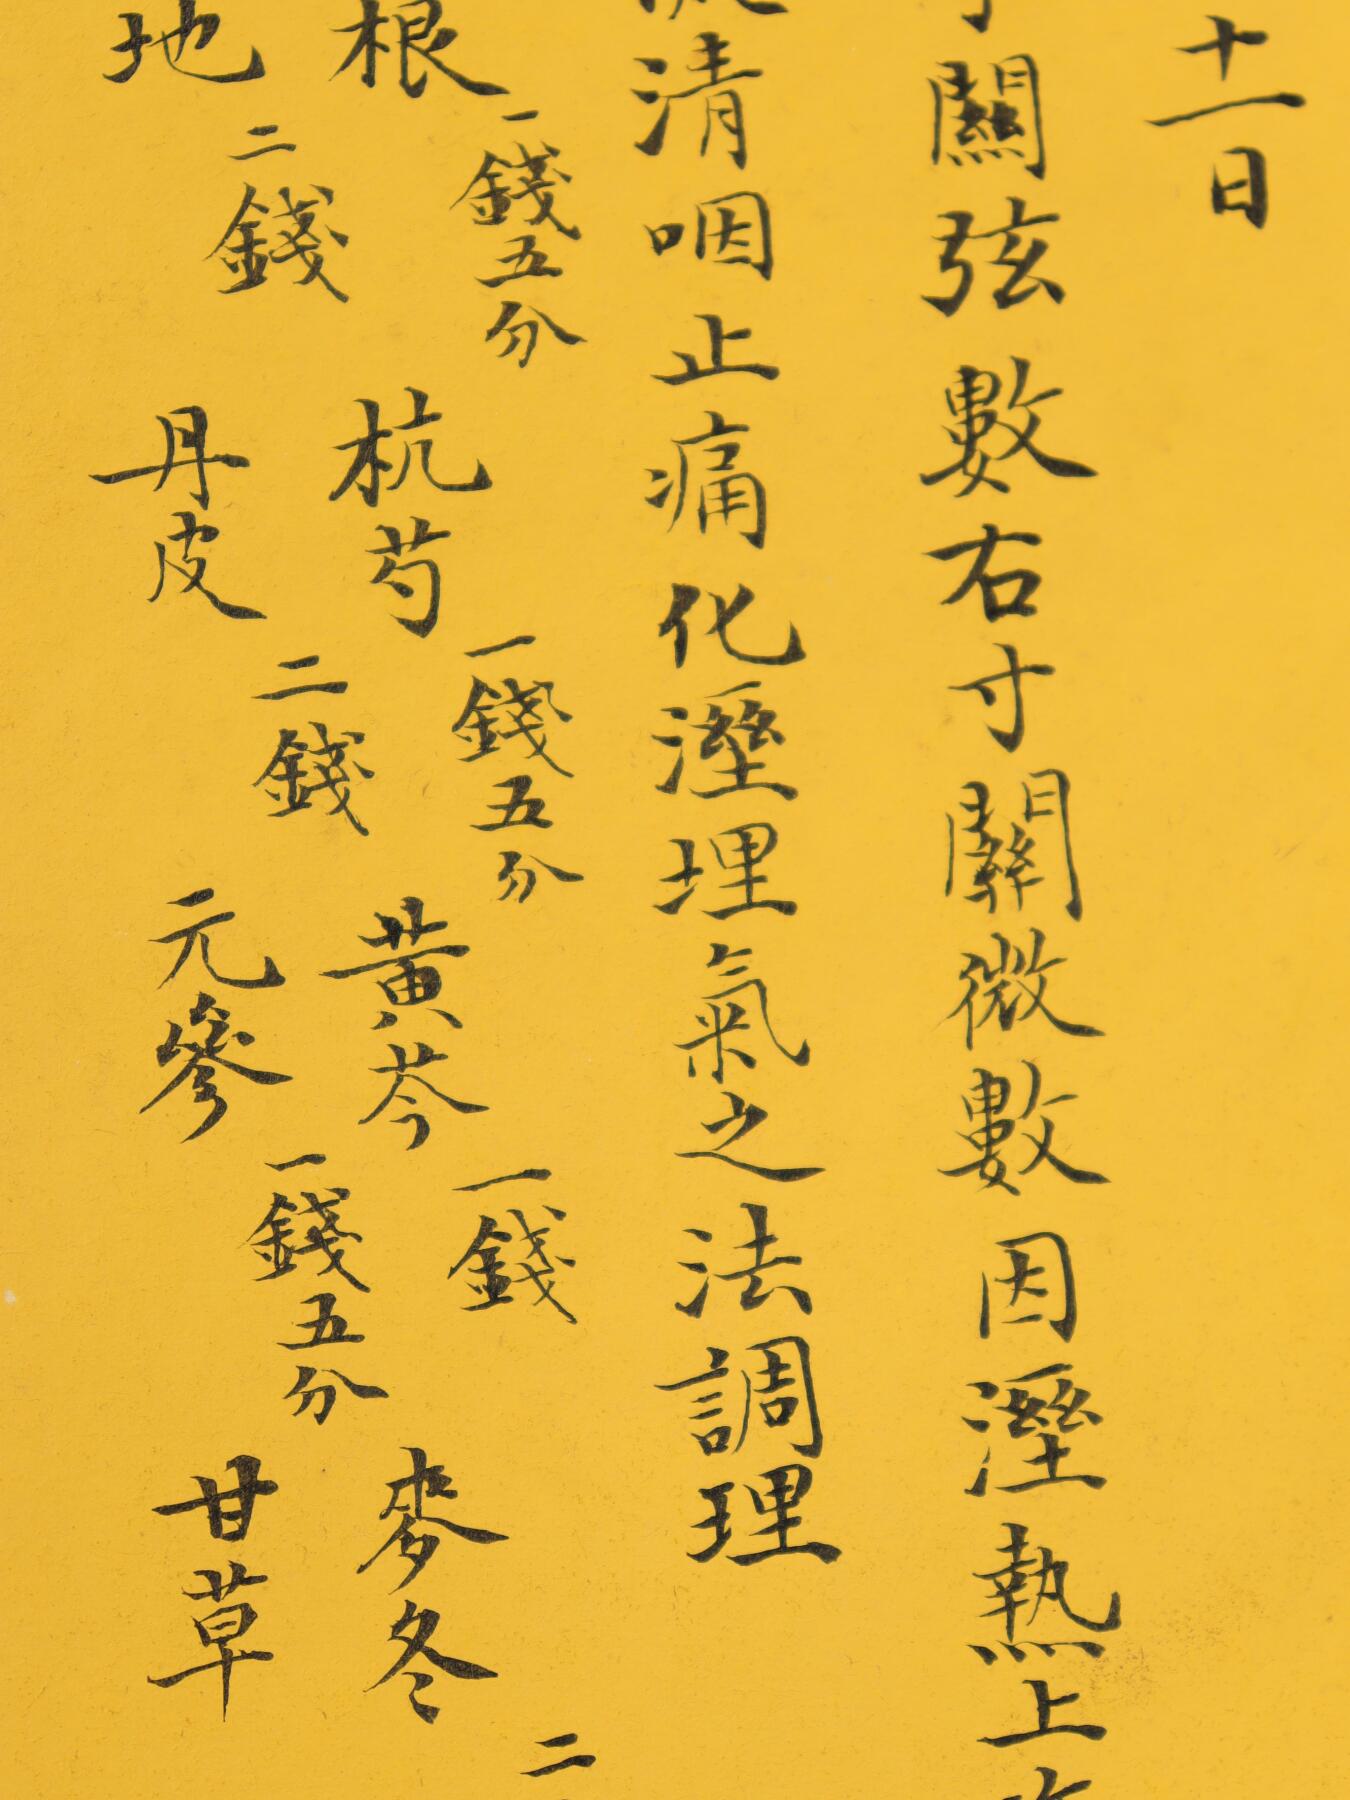 十一日
關弦數右寸關微數因溼熱上
清咽止痛化溼理氣之法調理
根一錢五分 杭芍一錢五分 黃芩一錢 麥冬二
地二錢 丹皮二錢 元參一錢五分 甘草